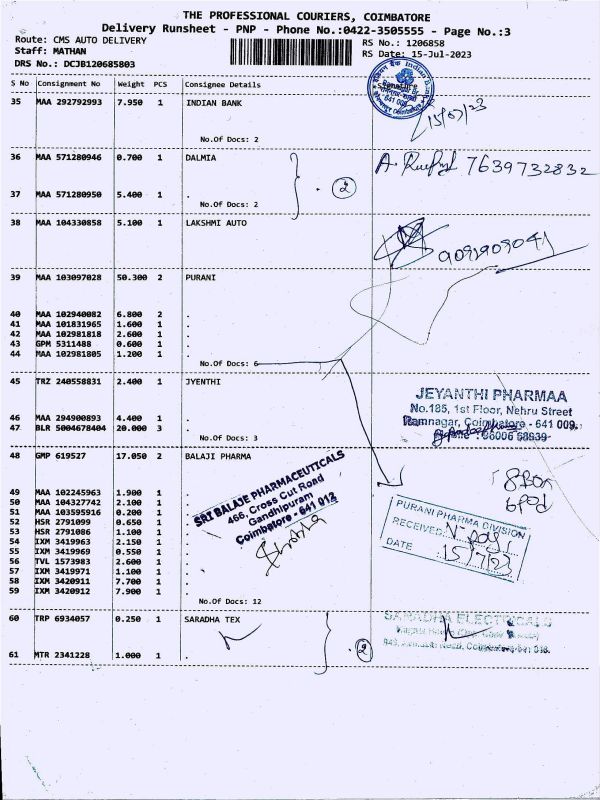 THE PROFESSIONAL COURIERS, COIMBATORE
Delivery Runsheet - PNP - Phone No.:0422-3505555 - Page No.:3
Route: CMS AUTO DELIVERY
Staff: MATHAN
DRS No.: DCJB120685803
RS No.: 1206858
RS Date: 15-Jul-2023
S No Consignment No Weight PCS Consignee Details Signature
35 MAA 292792993 7.950 1 INDIAN BANK
15/07/23
No.Of Docs: 2
36 MAA 571280946 0.700 1 DALMIA
7639732832
37 MAA 571280950 5.400 1 .
2
No.Of Docs: 2
38 MAA 104330858 5.100 1 LAKSHMI AUTO
39 MAA 103097028 50.300 2 PURANI
40 MAA 102940082 6.800 2 .
41 MAA 101831965 1.600 1 .
42 MAA 102981818 2.600 1 .
43 GPM 5311488 0.600 1 .
44 MAA 102981805 1.200 1 .
No.Of Docs: 6
45 TRZ 240558831 2.400 1 JYENTHI
JEYANTHI PHARMAA
No.185, 1st Floor, Nehru Street
Ramnagar, Coimbatore - 641 009.
46 MAA 294900893 4.400 1 .
47 BLR 5004678404 20.000 3 .
No.Of Docs: 3
48 GMP 619527 17.050 2 BALAJI PHARMA
SRI BALAJE PHARMACEUTICALS
466, Cross Cut Road
Gandhipuram
Coimbatore - 641 012
8 Box
6 pod
49 MAA 102245963 1.900 1 .
50 MAA 104327742 2.100 1 .
51 MAA 103595916 0.200 1 .
52 HSR 2791099 0.650 1 .
53 HSR 2791086 1.100 1 .
54 IXM 3419963 2.150 1 .
55 IXM 3419969 0.550 1 .
56 TVL 1573983 2.600 1 .
57 IXM 3419971 1.100 1 .
58 IXM 3420911 7.700 1 .
59 IXM 3420912 7.900 1 .
PURANI PHARMA DIVISION
RECEIVED
DATE 15/7/23
No.Of Docs: 12
60 TRP 6934057 0.250 1 SARADHA TEX
SARADHA ELECTRICALS
61 MTR 2341228 1.000 1 .
2